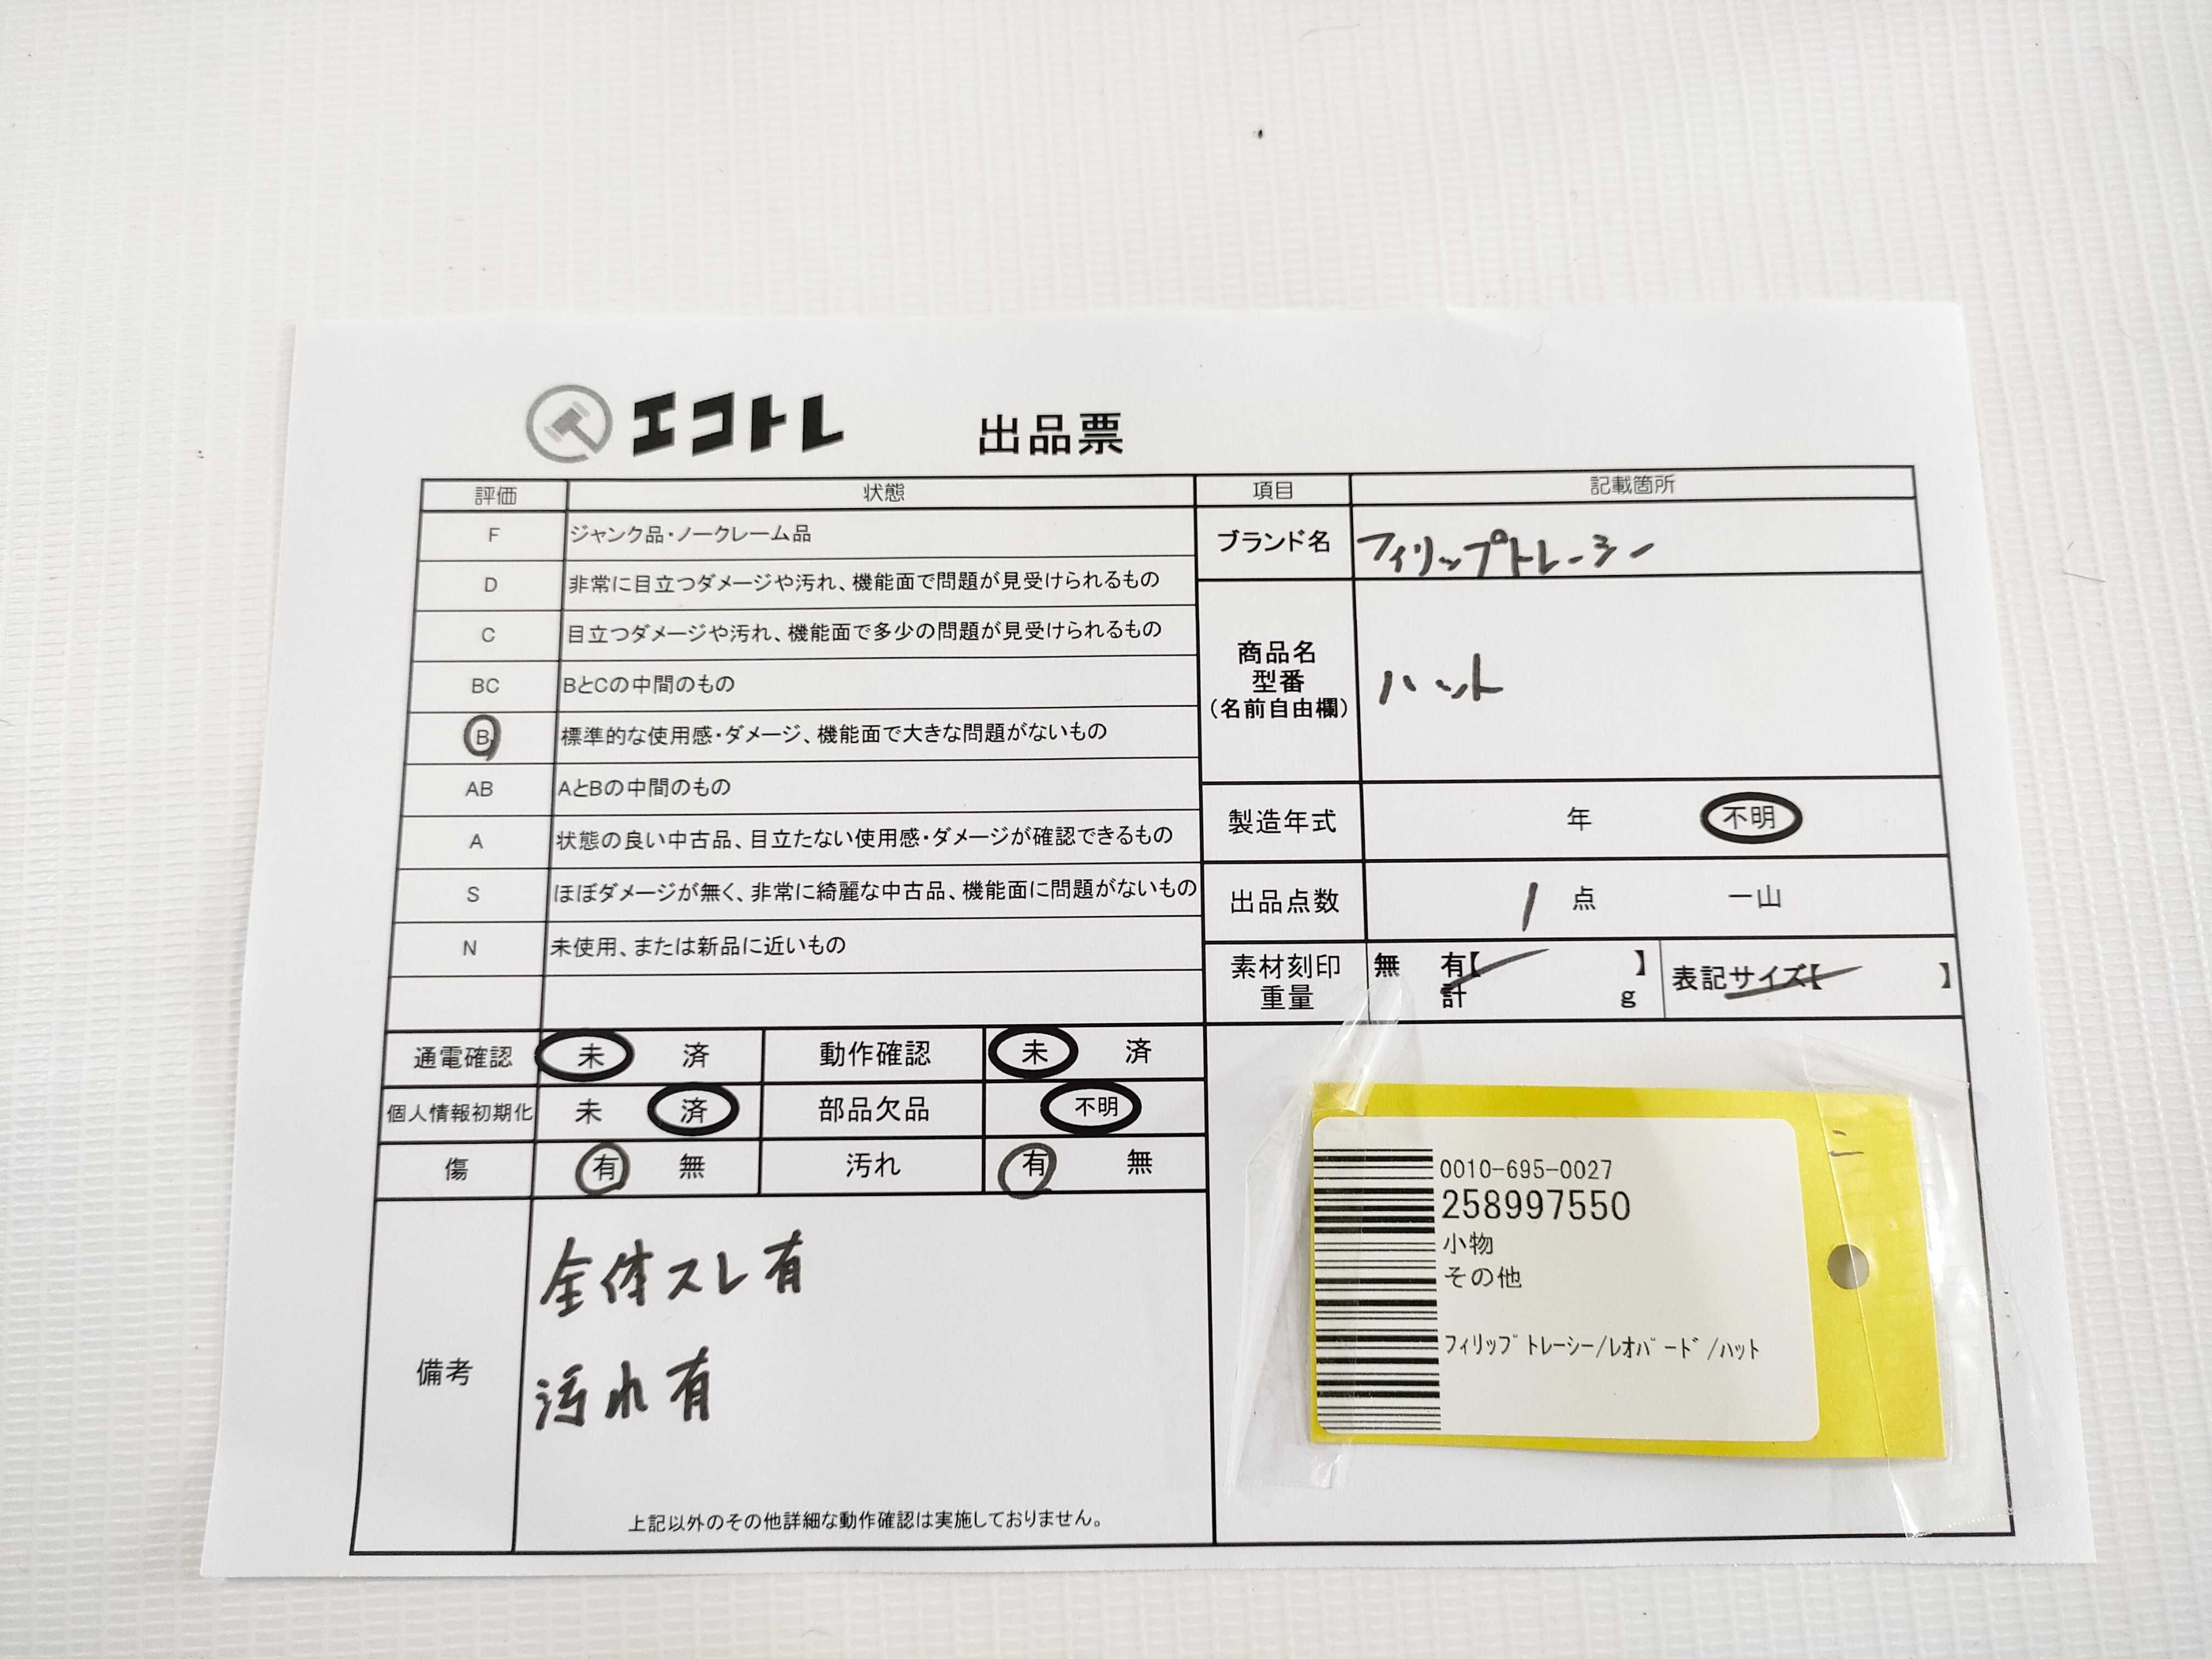 エコトレ 出品票
評価 状態 項目 記載箇所
F ジャンク品・ノークレーム品
D 非常に目立つダメージや汚れ、機能面で問題が見受けられるもの
C 目立つダメージや汚れ、機能面で多少の問題が見受けられるもの
BC BとCの中間のもの
B 標準的な使用感・ダメージ、機能面で大きな問題がないもの
AB AとBの中間のもの
A 状態の良い中古品、目立たない使用感・ダメージが確認できるもの
S ほぼダメージが無く、非常に綺麗な中古品、機能面に問題がないもの
N 未使用、または新品に近いもの
ブランド名 フィリップトレーシー
商品名
型番
(名前自由欄)
ハット
製造年式 年 不明
出品点数 1 点 一山
素材刻印 無 有【 】 表記サイズ【 】
重量 計 g
通電確認 未 済 動作確認 未 済
個人情報初期化 未 済 部品欠品 不明
傷 有 無 汚れ 有 無
備考
全体スレ有
汚れ有
上記以外のその他詳細な動作確認は実施しておりません。
0010-695-0027
258997550
小物
その他
ﾌｨﾘｯﾌﾟﾄﾚｰｼｰ/ﾚｵﾊﾟｰﾄﾞ/ﾊｯﾄ